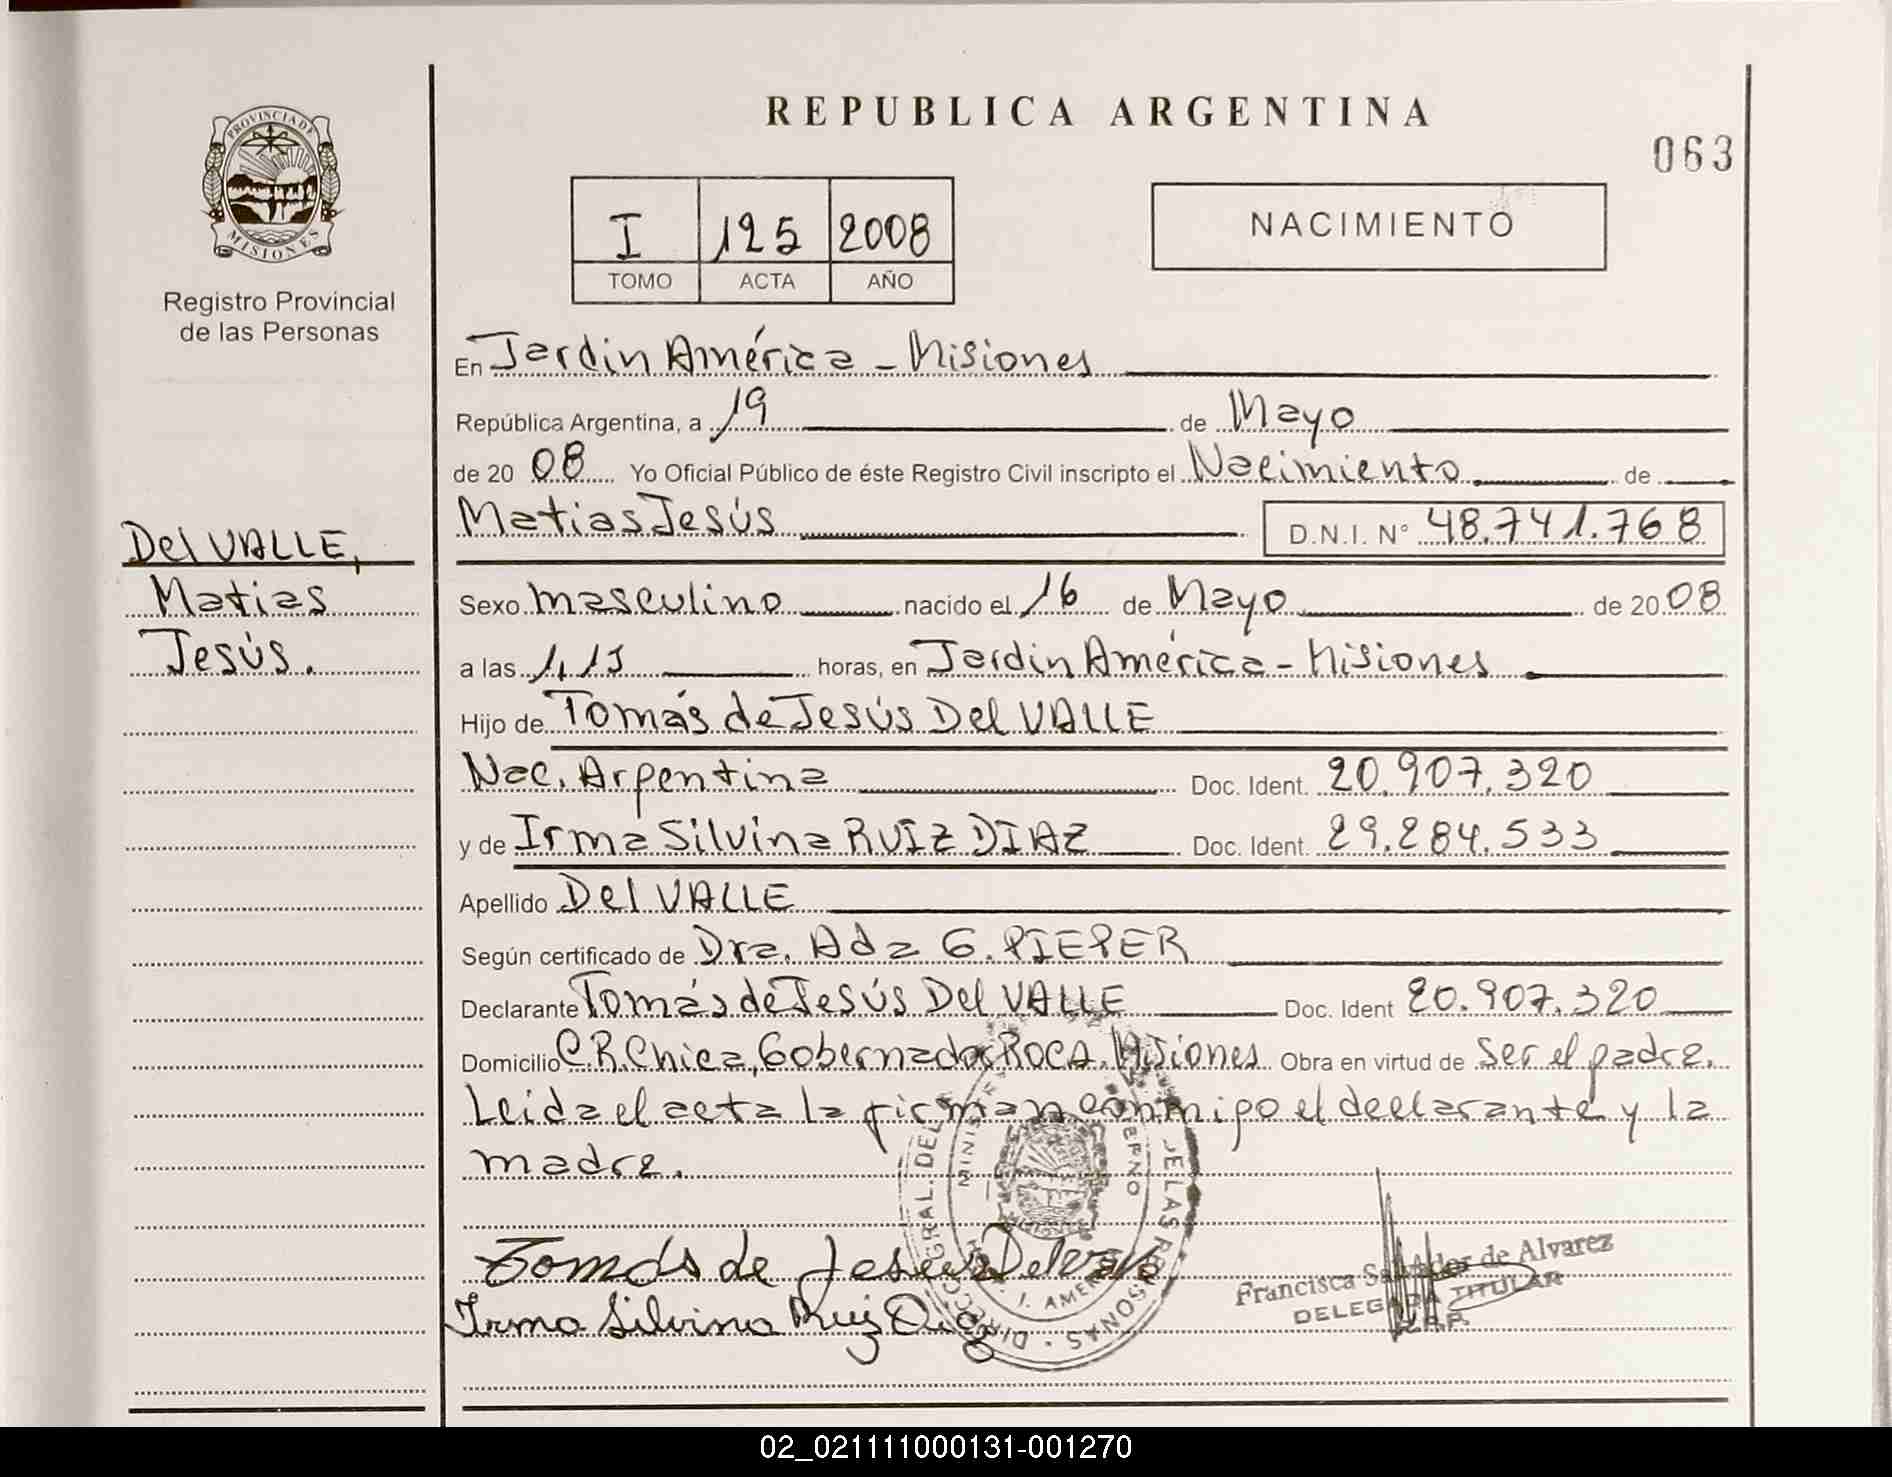 REPUBLICA ARGENTINA
063
PROVINCIA DE
MISIONES
Registro Provincial
de las Personas
I 125 2008
TOMO ACTA AÑO
NACIMIENTO
En Jardin América - Misiones
República Argentina, a 19 de Mayo
de 20 08 Yo Oficial Público de éste Registro Civil inscripto el Nacimiento de
Matias Jesús D.N.I. N° 48.741.768
Del VALLE,
Matias
Jesús.
Sexo masculino nacido el 16 de Mayo de 20 08
a las horas, en Jardin América - Misiones
Hijo de Tomás de Jesús Del VALLE
Nac. Argentina Doc. Ident. 20.907.320
y de Irma Silvina RUIZ DIAZ Doc. Ident. 29.284.533
Apellido Del VALLE
Según certificado de Dra. Ada G. PIEPER
Declarante Tomás de Jesús Del VALLE Doc. Ident 20.907.320
Domicilio C.R. Chica, Gobernador ROCA, Misiones Obra en virtud de ser el padre.
Leida el acta la firman conmigo el declarante y la
madre.
Tomás de Jesus Del valle
Irma Silvina Ruiz Diaz
Francisca Salvador de Alvarez
DELEGADA TITULAR
R.P.P.
02_021111000131-001270